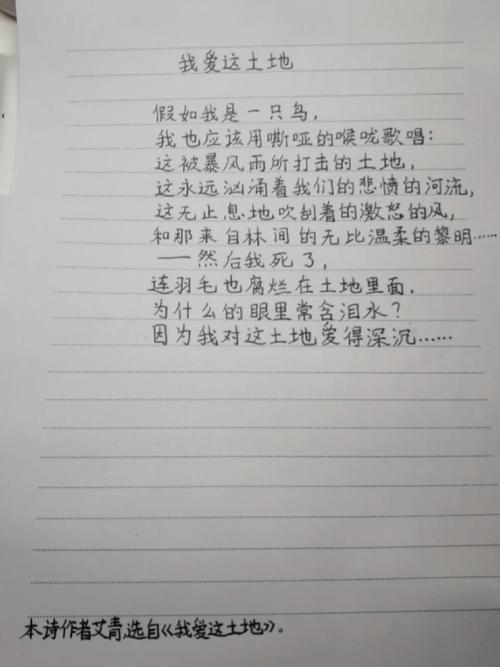 我爱这土地
假如我是一只鸟，
我也应该用嘶哑的喉咙歌唱：
这被暴风雨所打击的土地，
这永远汹涌着我们的悲愤的河流，
这无止息地吹刮着的激怒的风，
和那来自林间的无比温柔的黎明……
——然后我死了，
连羽毛也腐烂在土地里面．
为什么的眼里常含泪水？
因为我对这土地爱得深沉……
本诗作者艾青，选自《我爱这土地》。